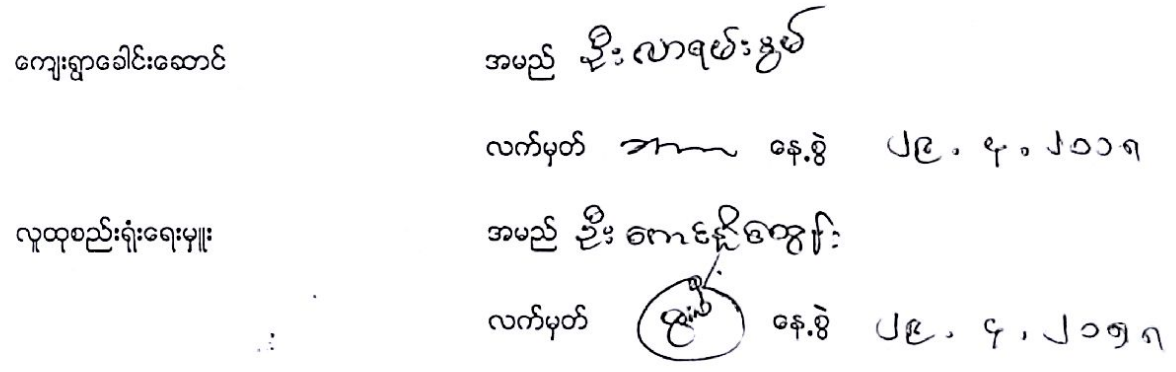 ကျေးရွာခေါင်းဆောင် အမည် ဦးလာရမ်းနွမ်
လက်မှတ် နေ့စွဲ ၂၉.၄.၂၀၁၈
လူထုစည်းရုံးရေးမှူး အမည် ဦး
လက်မှတ် နေ့စွဲ ၂၉.၄.၂၀၁၈